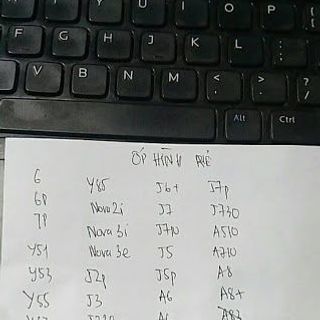 Y U I O P
F G H J K L : ;
V B N M < , > . ? /
Alt Ctrl
ỐP HÌNH RẺ
6 Y85 J6+ J7p
6P Nova 2i J7 J730
7P Nova 3i J7p A510
Y51 Nova 3e J5 A710
Y53 J2p J5p A8
Y55 J3 A6 A8+